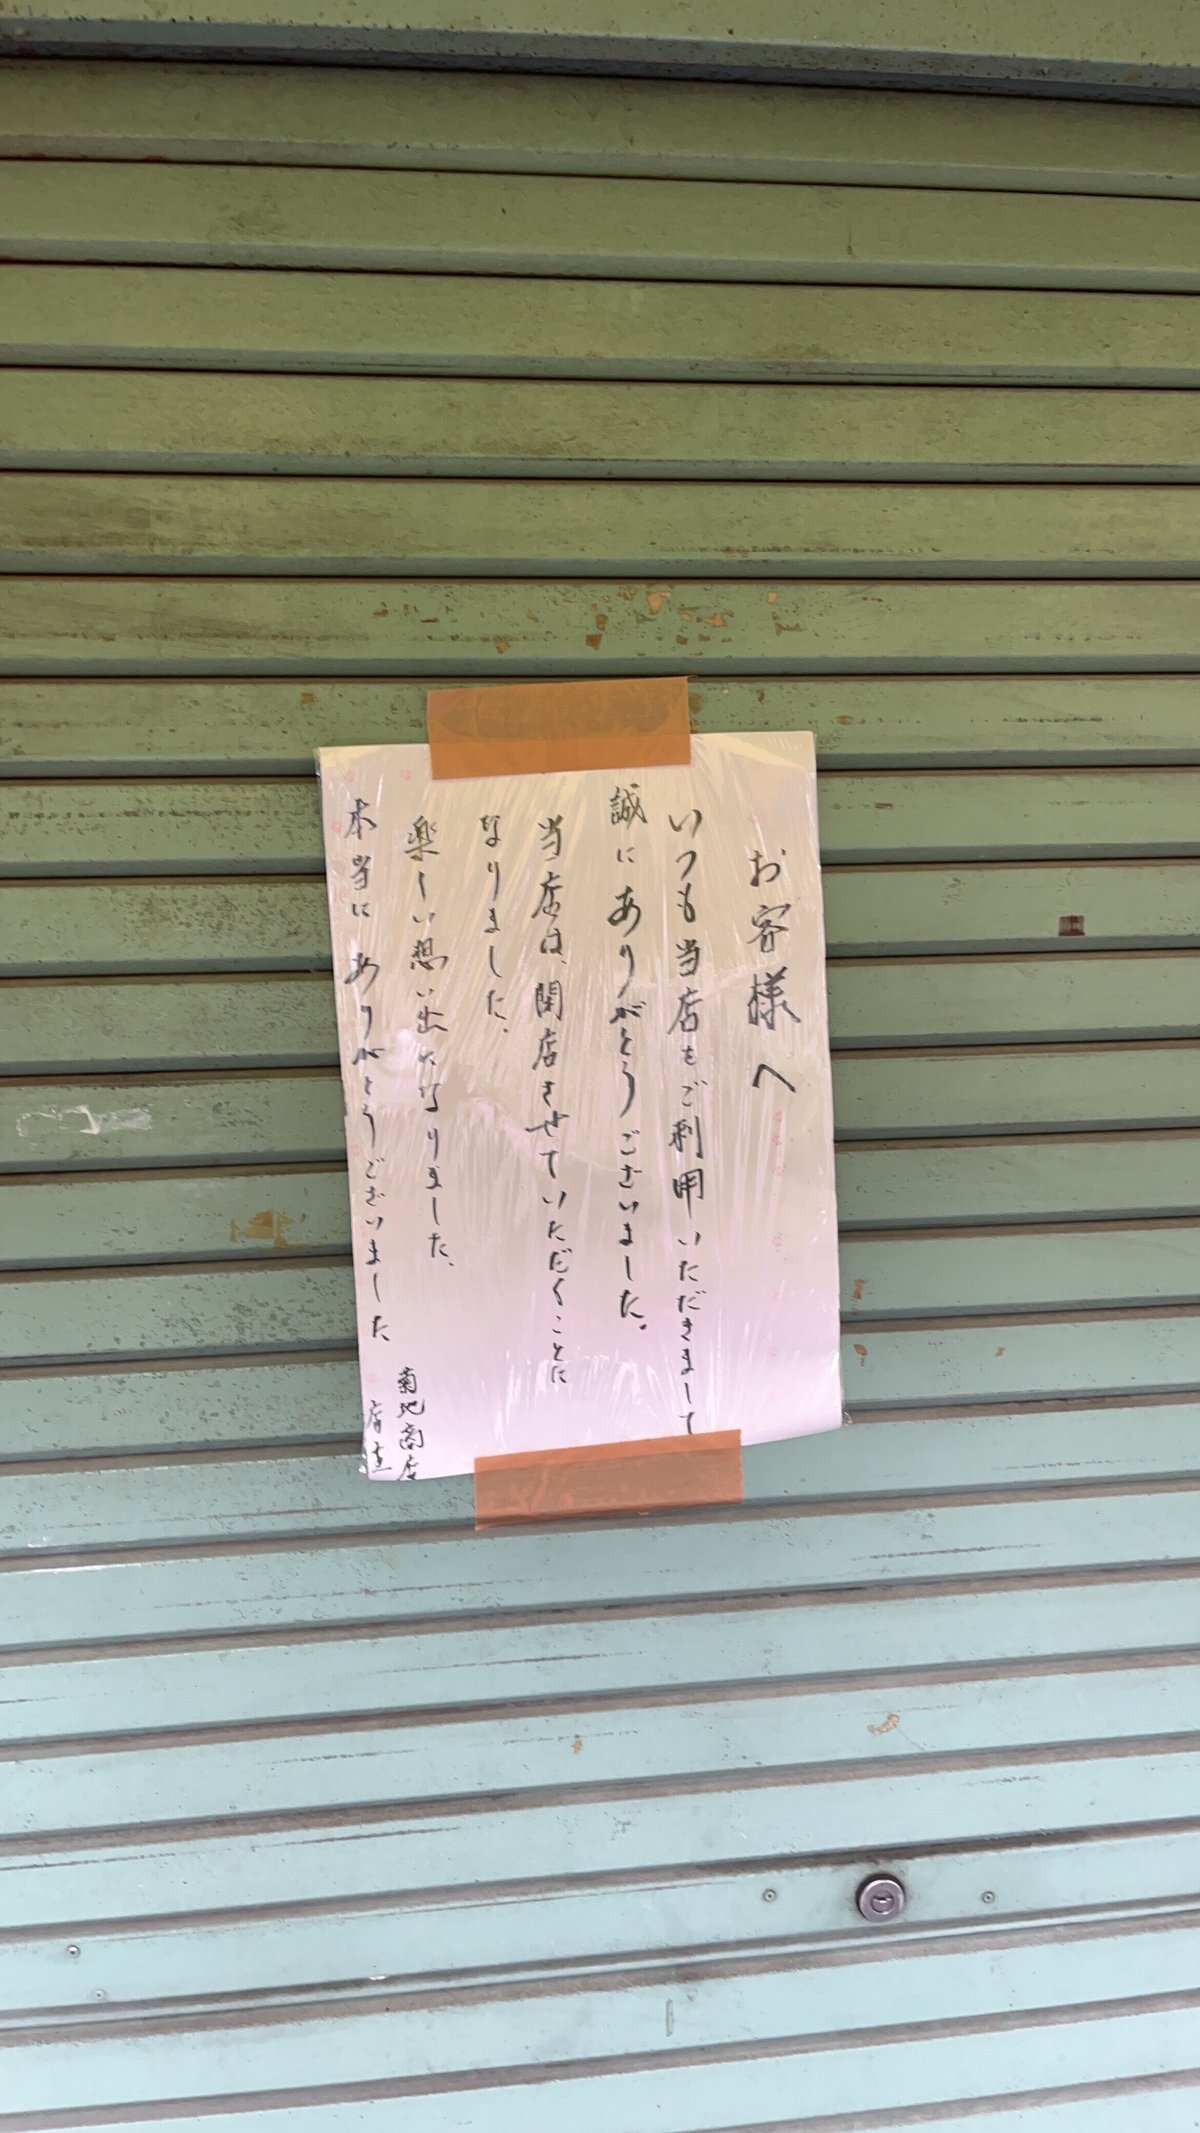 お客様へ
いつも当店をご利用いただきまして
誠にありがとうございました。
当店は、閉店させていただくことに
なりました。
楽しい想い出になりました、
本当にありがとうございました
菊地商店
店主